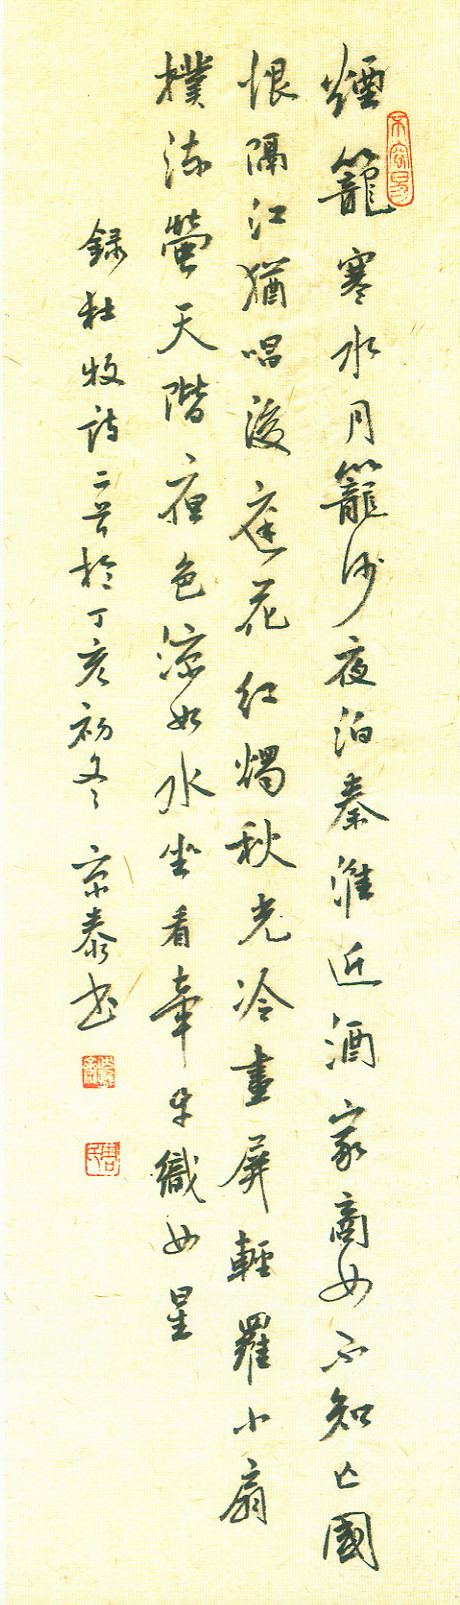 煙籠寒水月籠沙夜泊秦淮近酒家商女不知亡國
恨隔江猶唱後庭花紅燭秋光冷畫屏輕羅小扇
撲流螢天階夜色涼如水坐看牽牛織女星
錄杜牧詩二首於丁亥初冬 京泰书